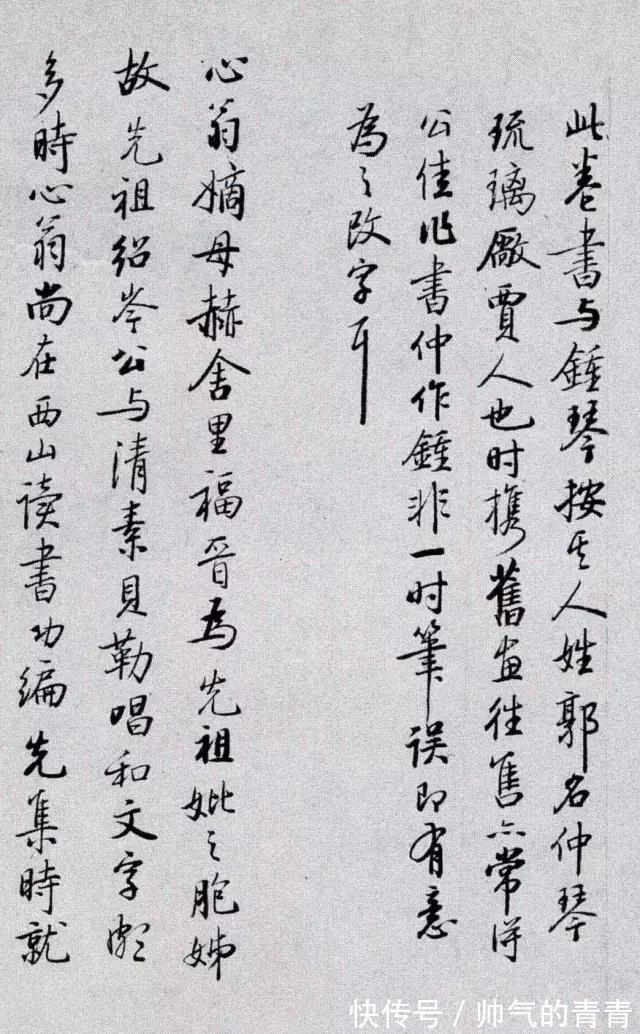 此卷書与鍾琴按其人姓郭名仲琴
琉璃廠賈人也时携舊画往售亦常得
公佳作書仲作鍾非一时筆误即有意
為之改字耳
心翁嫡母赫舍里福晋為先祖妣之胞姊
故先祖绍岑公与清素貝勒唱和文字頗
多時心翁尚在西山读書功编先集時就
快传号/帅气的青青